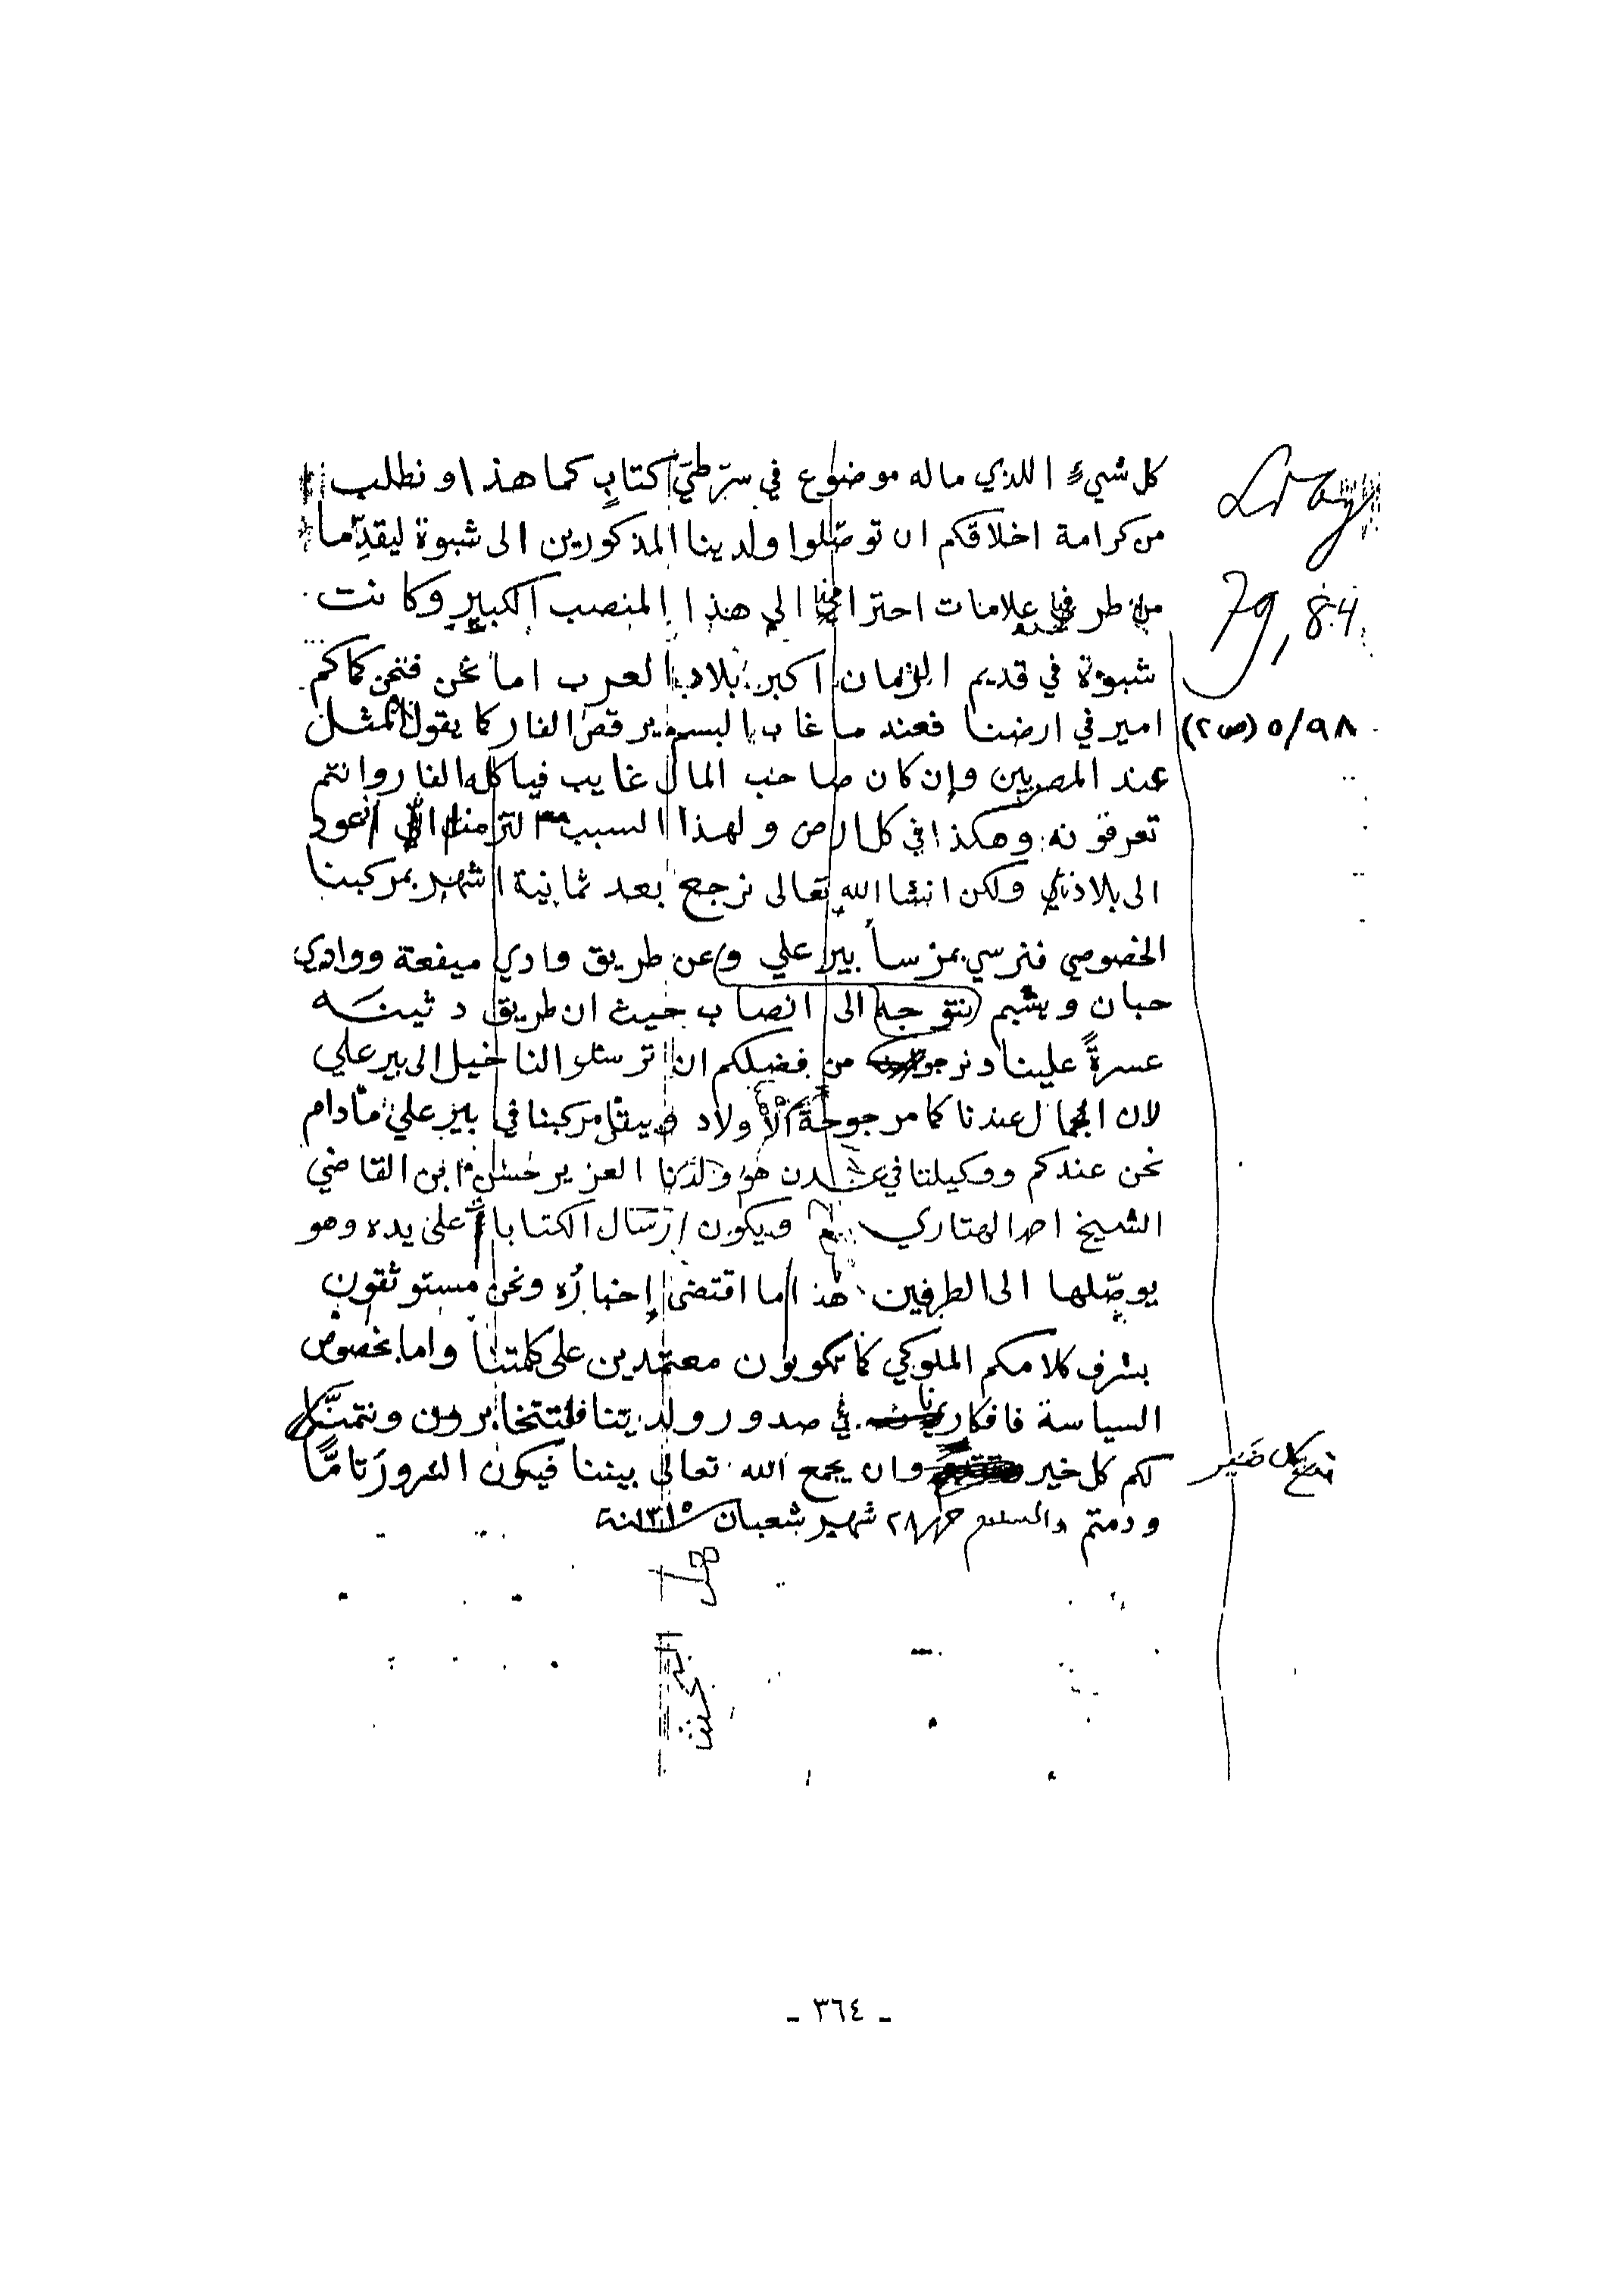 كل شيء اللذي ماله موضوع في سرّ طيّ كتاب كما هذا ونطلب
من كرامة اخلاقكم ان توصّلوا ولدينا المذكورين الى شبوة ليقدّما
من طرفنا علامات احترامنا الى هذا المنصب الكبير وكانت
79, 84
شبوة في قديم الزمان اكبر بلاد العرب اما نحن فنحن كماكم
٥/٩٨ (ص٢)
امير في ارضنا فعند ما غاب البس يرقص الفار كا يقول المثل
عند المصريين وإن كان صاحب المال غايب فياكله الفار وانتم
تعرفونه وهكذا في كل ارض ولهذا السبب التزمنا ان نعود
الى بلادنا ولكن انشا الله تعالى نرجع بعد ثمانية اشهر بمركبنا
الخصوصي فنرسي بمرسأ بير علي وعن طريق وادي ميفعة ووادي
حبان ويشبم نتوجه الى انصاب حيث ان طريق دثينه
عسرةً علينا ونرجو من فضلكم ان ترسلو النا خيل الى بير علي
لان الجمال عندنا كا مرجوحة الأولاد ويبقا مركبنا في بير علي ما دام
نحن عندكم ووكيلنا في عدن هو ولدنا العزيز حسن ابن القاضي
الشيخ احمد الهتاري ويكون ارسال الكتابات على يده وهو
يوصّلها الى الطرفين هذا ما اقتضى إخباره ونحن مستوثقون
بشرف كلامكم الملوكي كا تكونون معتمدين على كلمتنا واما بخصوص
السياسة فافكارنا في صدور ولديتنا فتتخابرون ونتمنّى
لكم كل خير وان يجمع الله تعالى بيننا فيكون السرور تامًّا
ودمتم والسلام حرر ٢٨ شهر شعبان سنة ١٣١٥
- ٣٦٤ -